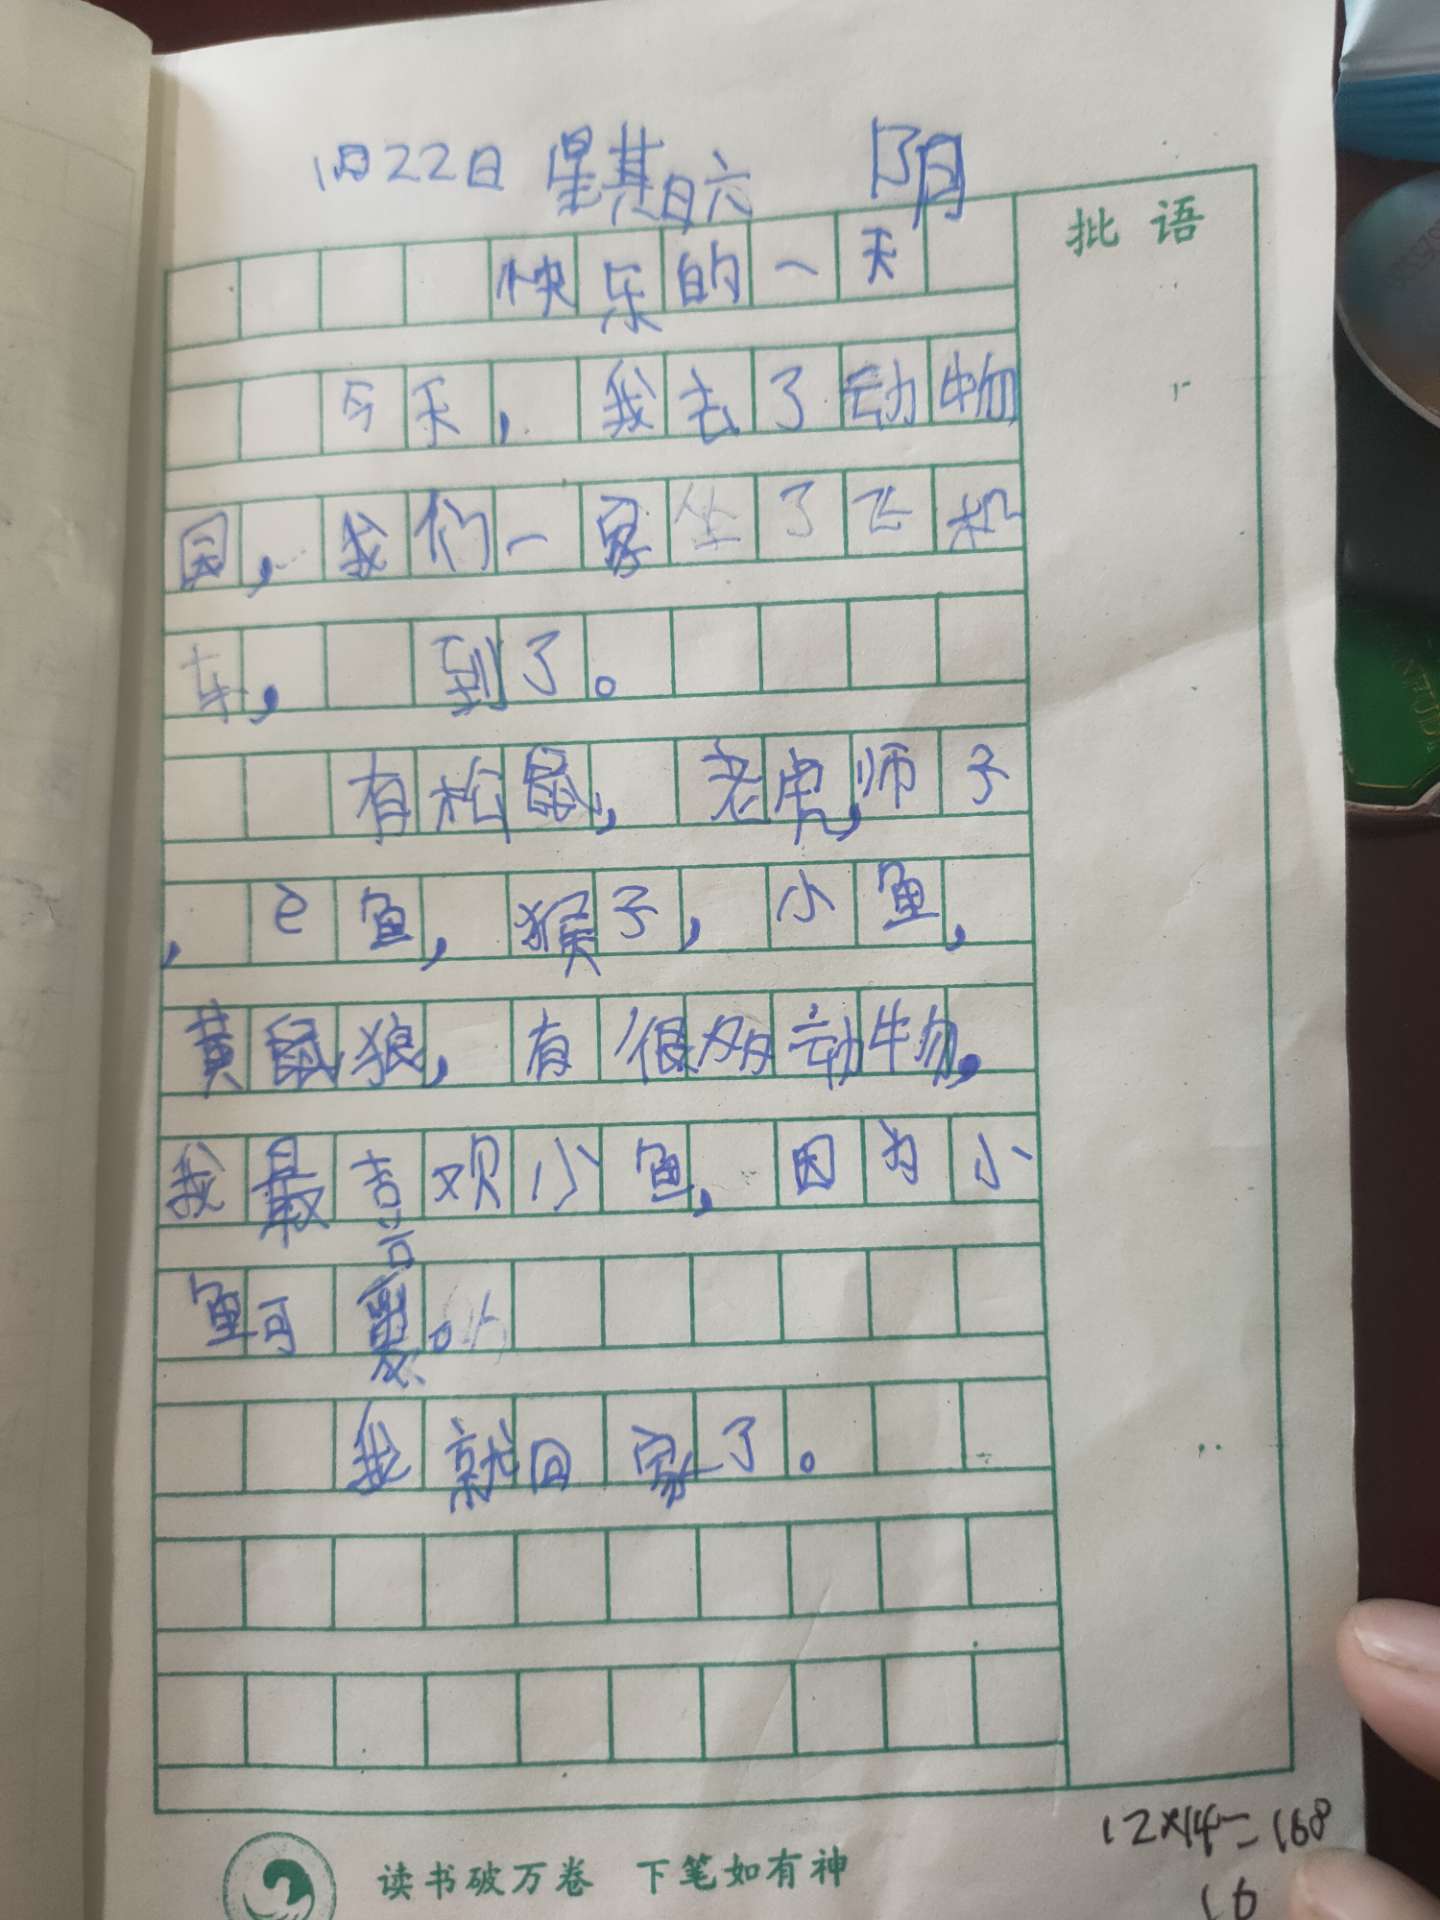 1月22日 星期六 阴
批语
快乐的一天
今天，我去了动物
园，我们一家坐了飞机
车，到了。
有松鼠，老虎，师子
，e鱼，猴子，小鱼，
黄鼠狼，有很多动物，
我最喜欢小鱼，因为小
鱼可爱。
我就回家了。
读书破万卷 下笔如有神
12×14=168
16